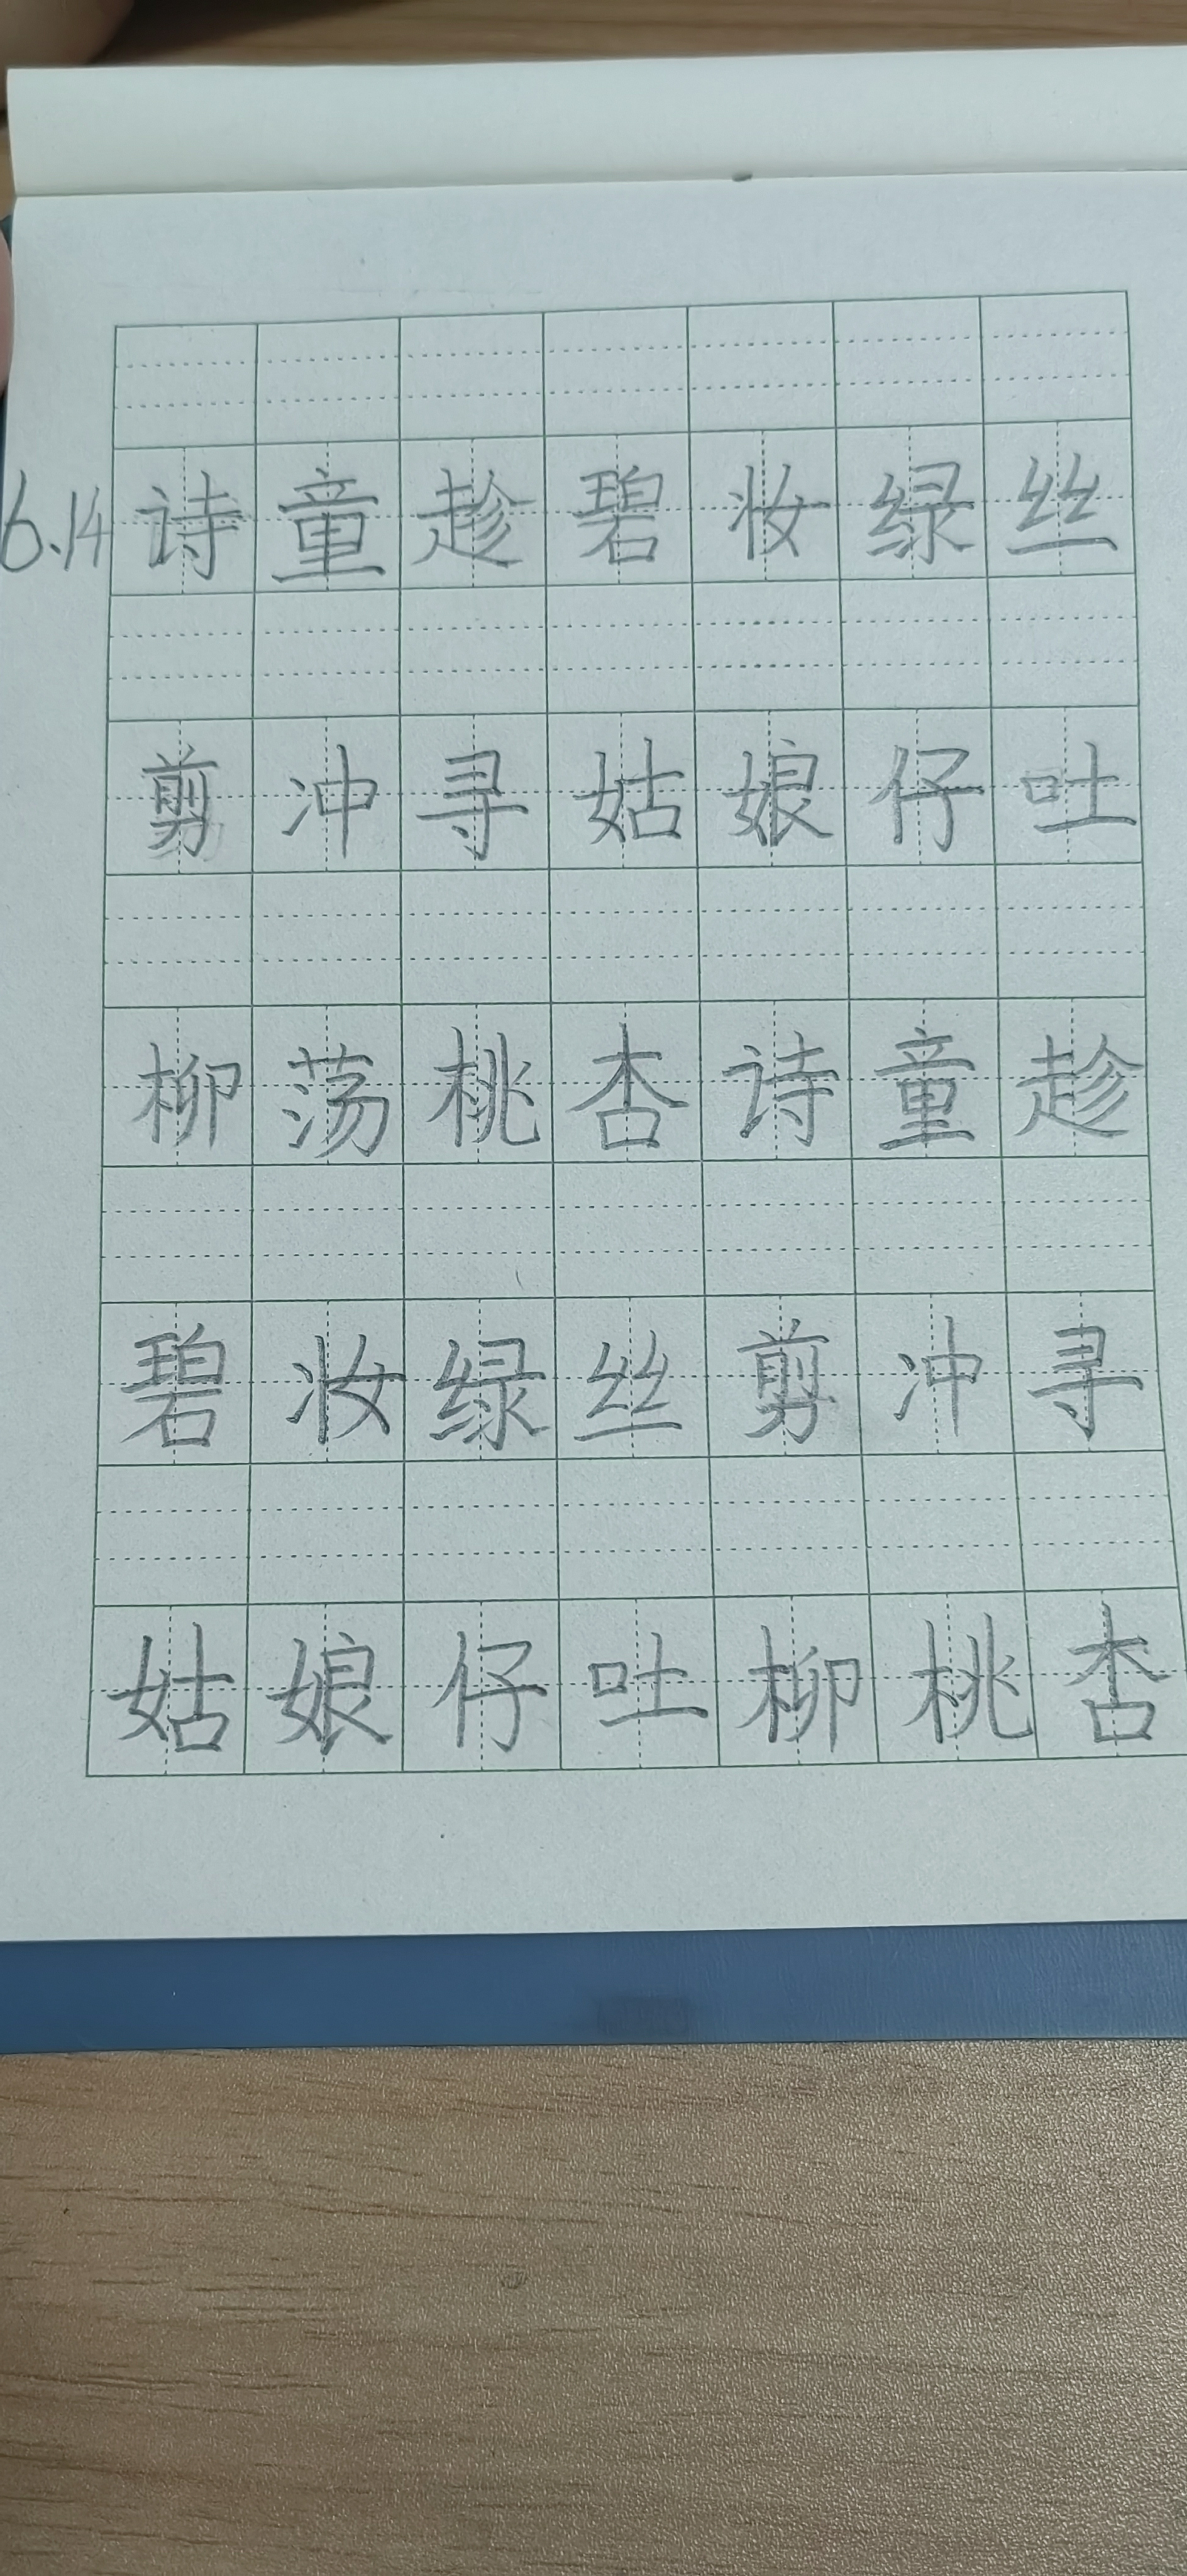 6.14 诗童趁碧妆绿丝
剪冲寻姑娘仔吐
柳荡桃杏诗童趁
碧妆绿丝剪冲寻
姑娘仔吐柳桃杏